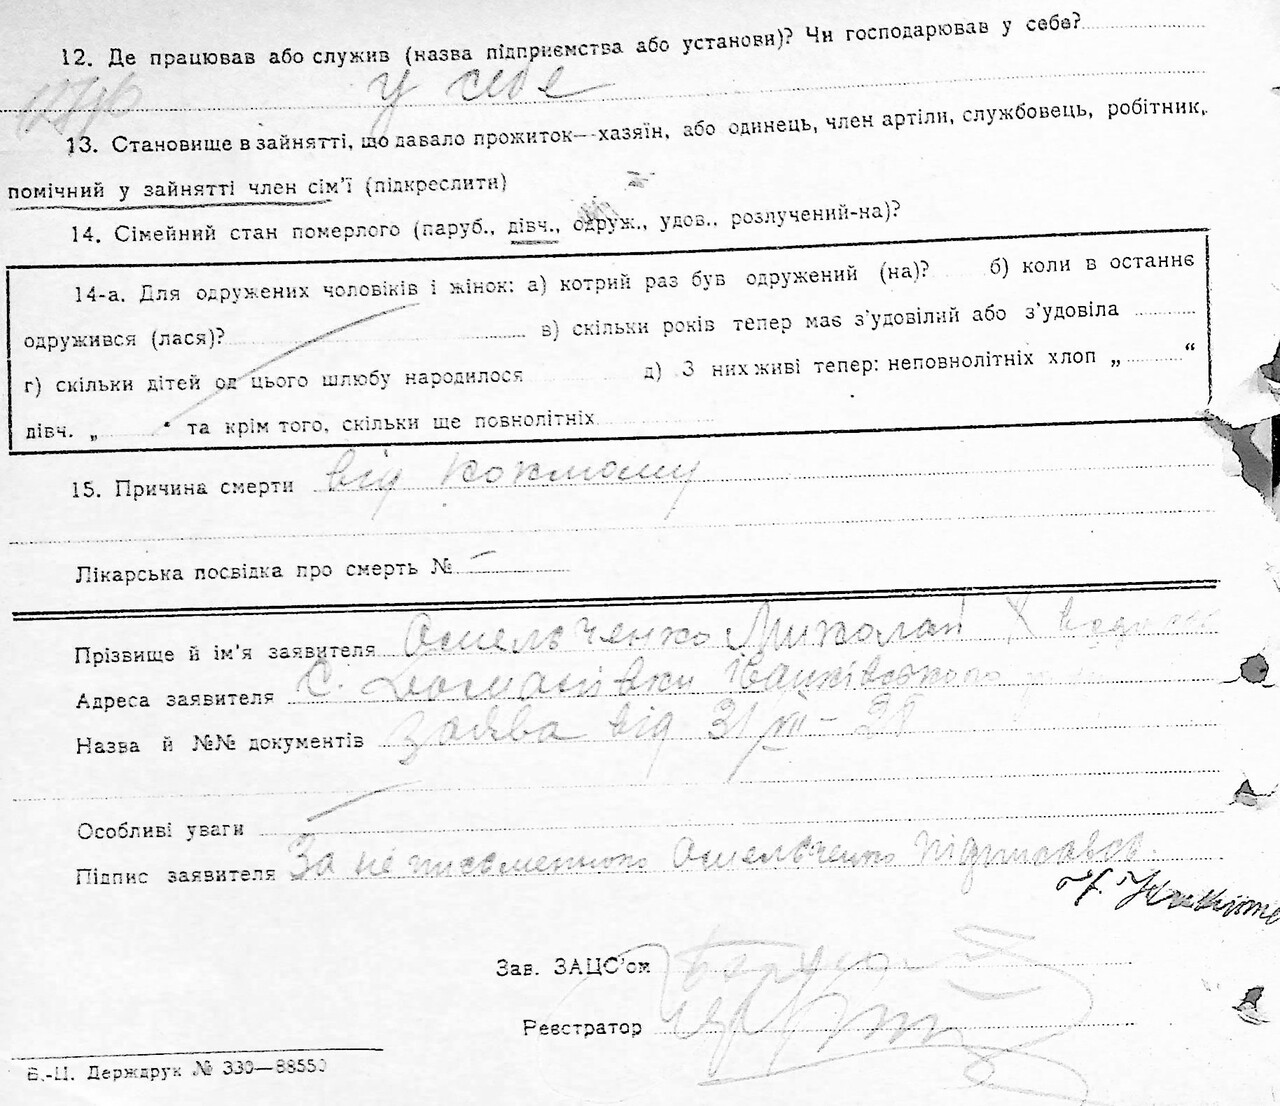 12. Де працював або служив (назва підприємства або установи)? Чи господарював у себе?
у себе
13. Становище в зайнятті, що давало прожиток—хазяїн, або одинець, член артіли, службовець, робітник,
помічний у зайнятті член сім'ї (підкреслити)
14. Сімейний стан померлого (паруб., дівч., одруж., удов., розлучений-на)?
14-а. Для одружених чоловіків і жінок: а) котрий раз був одружений (на)? б) коли в останнє
одружився (лася)? в) скільки років тепер має з'удовілий або з'удовіла
г) скільки дітей од цього шлюбу народилося д) З них живі тепер: неповнолітніх хлоп „ “
дівч. „ “ та крім того, скільки ще повнолітніх
15. Причина смерти від коклюшу
Лікарська посвідка про смерть № —
Прізвище й ім'я заявителя Омельченко Миколай
Адреса заявителя С. Домасівки
Назва й №№ документів заява від 31/VII—
Особливі уваги —
Підпис заявителя За неписьменного Омельченко підписався.
Зав. ЗАЦС'ом
Реєстратор
Б.-Ц. Держдрук № 330—88550